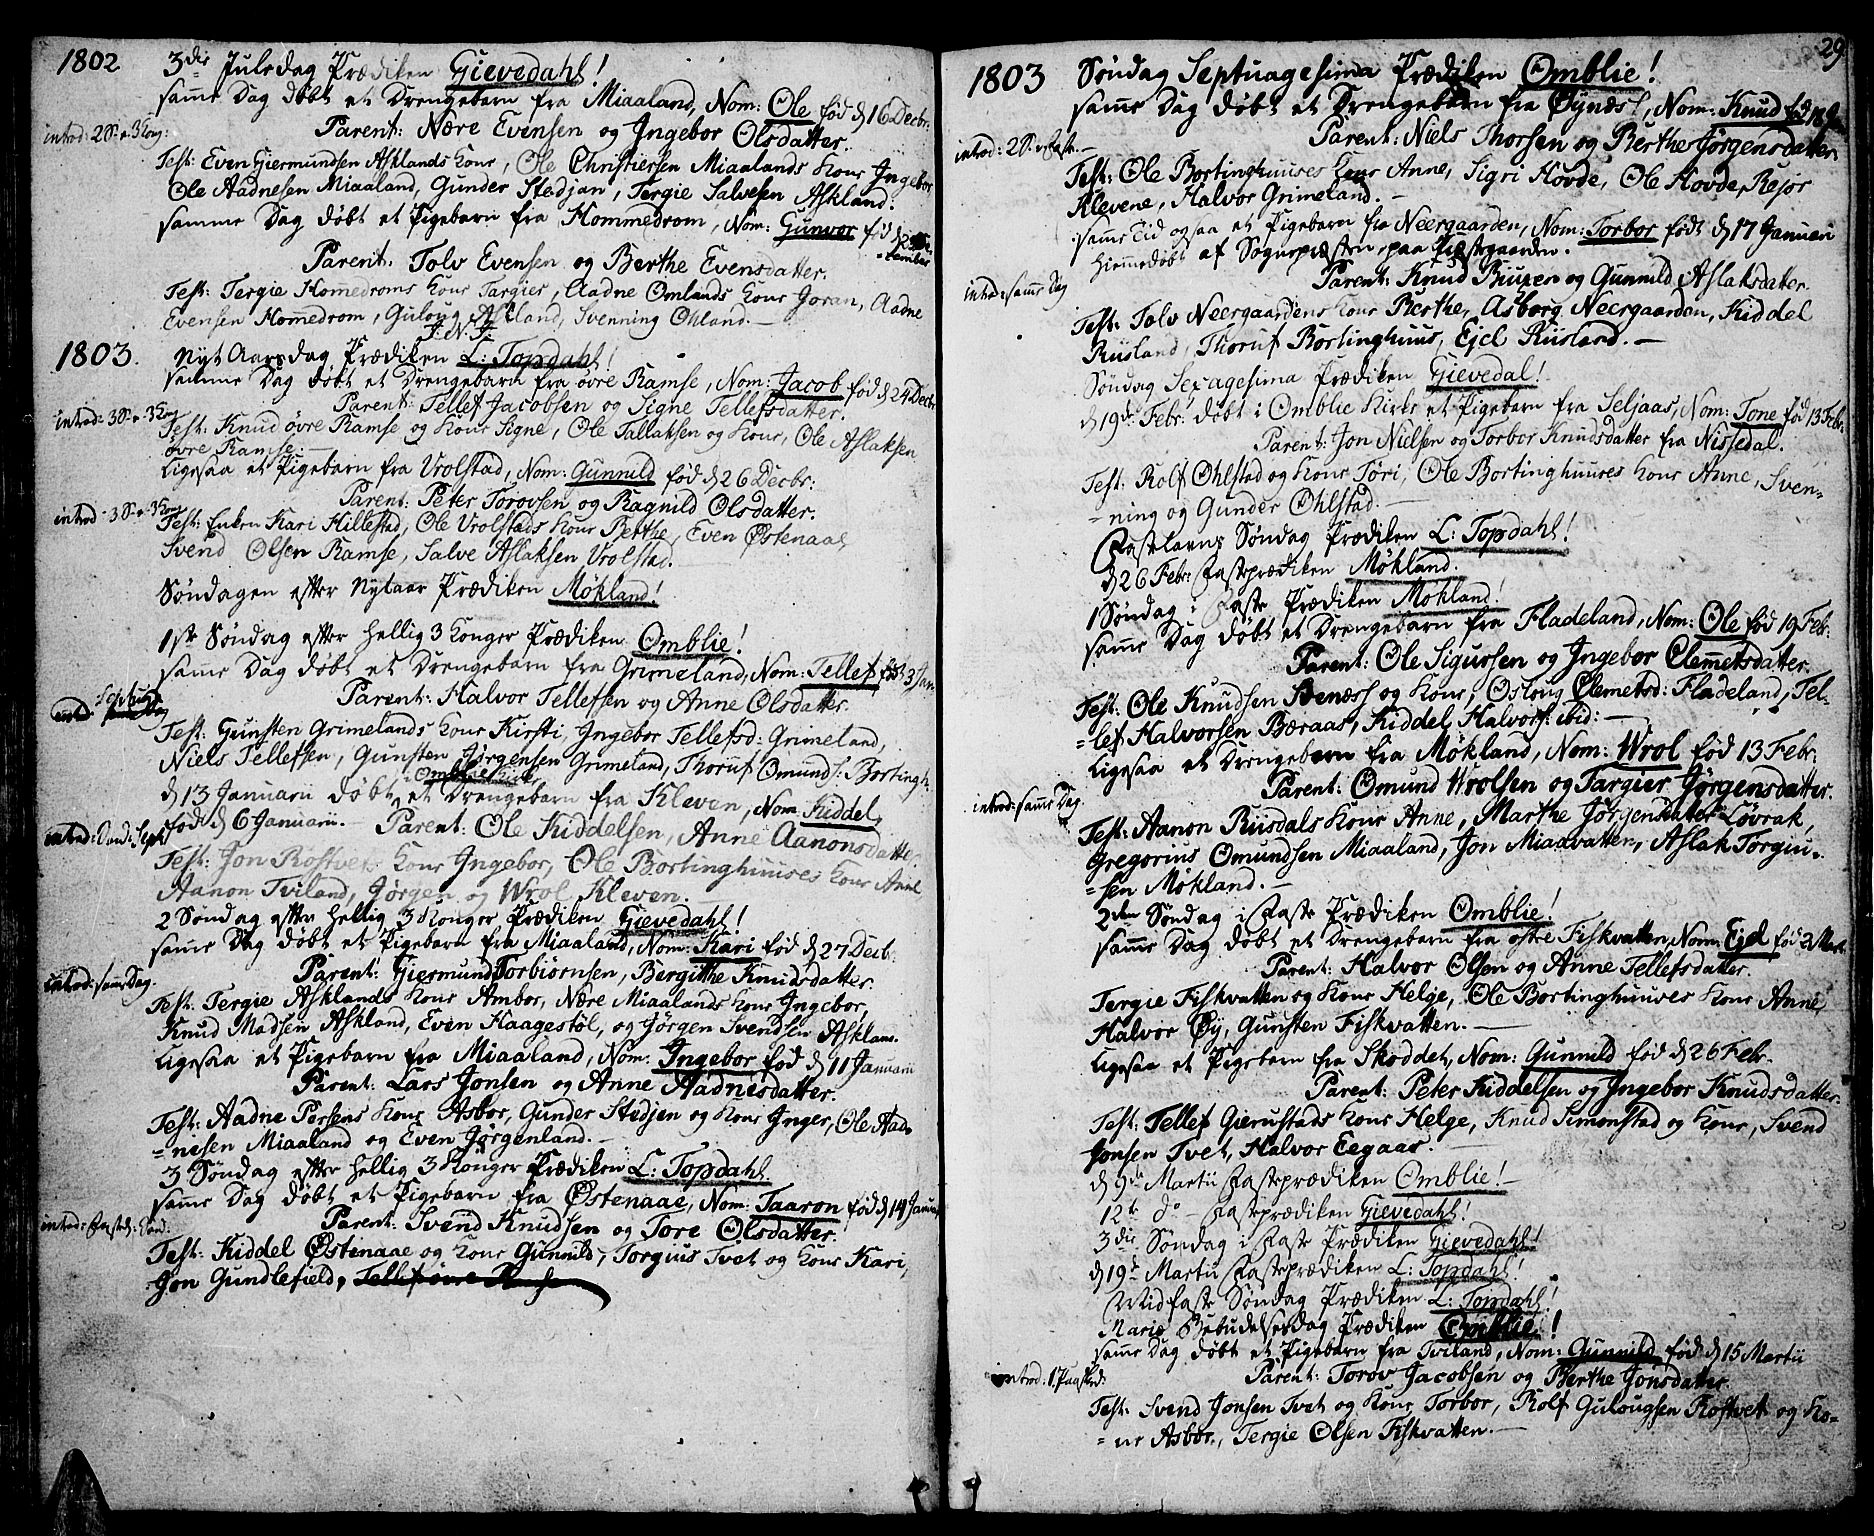 1802
3die Juledag Prædiken Gievedahl!
samme Dag døbt et Drengebarn fra Miaaland, Nom: Ole fød d 16 Decbr:
introd: 2 S. e. 3 Kong:
Parent: Nære Evensen og Ingebor Olsdatter.
Test: Even Giermundsen Asklands Kone, Ole Christiersen Miaalands Kone Ingebor,
Ole Aadnesen Miaaland, Gunder Stedjan, Tergie Salvesen Askland.
samme Dag døbt et Pigebarn fra Hommedrom, Nom: Gunvor fød d
Parent: Tolv Evensen og Berthe Evensdatter.
Test: Tergie Homedroms Kone Targier, Aadne Omlands Kone Joran, Aadne
Evensen Homedrom, Guloug Askland, Svenning Ohland.
J. N. J.
1803.
Nyt Aarsdag Prædiken L: Topdahl!
samme Dag døbt et Drengebarn fra øvre Ramse, Nom: Jacob fød d 24 Decbr
Parent: Tellef Jacobsen og Signe Tellefsdatter.
introd: 3 S. e. 3 Kong
Test: Knud øvre Ramse og Kone Signe, Ole Tallaksen og Kone, Ole Aslaksen
øvre Ramse.
Ligesaa et Pigebarn fra Vrolstad, Nom: Gunnild fød d 26 Decbr:
Parent: Peter Torovsen og Ragnild Olsdatter.
introd 3 S. e. 3 Kong
Test: Enken Kari Hillestad, Ole Vrolstads Kone Berthe, Even Østenaae,
Svend Olsen Ramse, Salve Aslaksen Vrolstad.
Søndagen efter Nytaar Prædiken Møkland!
1ste Søndag efter Hellig 3 Konger Prædiken Omblie!
samme Dag døbt et Drengebarn fra Grimeland, Nom: Tellef fød 3 Jan:
Parent: Halvor Tellefsen og Anne Olsdatter.
Test: Gunsten Grimelands Kone Kirsti, Ingebor Tellefsd: Grimeland,
Niels Tellefsen, Gunsten Jørgensen Grimeland, Thoruf Omunds: Bortingh:
Omblie Kirke
d 13 Januarii døbt et Drengebarn fra Kleven, Nom: Kiddel,
fød d 6 Januarii. Parent: Ole Kiddelsen, Anne Aanonsdatter
Test: Jon Røstvets Kone Ingebor, Ole Bortinghuuses Kone Anne
Aanon Tviland, Jørgen og Wrol Kleven.
2 Søndag efter Hellig 3 Konger Prædiken Gievedahl!
samme Dag døbt et Pigebarn fra Miaaland, Nom: Kari fød d 27 Decb.
Parent: Giermund Torbiørnsen, Bergithe Knudsdatter.
introd: samme Dag.
Test: Tergie Asklands Kone Ambor, Nære Miaalands Kone Ingebor,
Knud Madsen Askland, Even Haagestøl, og Jørgen Svendsen Asklan.
Ligesaa et Pigebarn fra Miaaland, Nom: Ingebor fød d 11 Januarii
Parent: Lars Jonsen og Anne Aadnesdatter.
Test: Aadne Persens Kone Asbor, Gunder Stedjen og Kone Inger, Ole Aad-
=nesen Miaaland og Even Jørgenland.
3 Søndag efter Hellig 3 Konger Prædiken L: Topdahl.
samme Dag døbt et Pigebarn fra Østenaae, Nom: Taaron fød d 14 Januar
Parent: Svend Knudsen og Tore Olsdatter.
Test: Kiddel Østenaae og Kone Gunnild, Torgius Tvet og Kone Kari,
Jon Gundlefield, Tellef øvre Ramse
29
1803
Søndag Septuagesima Prædiken Omblie!
samme Dag døbt et Drengebarn fra Øynæs, Nom: Knud fød
Parent: Niels Thorsen og Berthe Jørgensdatter.
introd: 2 S. e. Faste.
Test: Ole Bortinghuuses Kone Anne, Sigri Hovde, Ole Hovde, Resør
Klevene, Halvor Grimeland.
samme Tid ogsaa et Pigebarn fra Neergaarden, Nom: Torbor født d 17 Januari
hjemmedøbt af Sognepræsten paa Præstgaarden.
introd: samme Dag
Parent: Knud Biuren og Gunnild Aslaksdatter
Test: Tolv Neergaardens Kone Berthe, Asborg Neergaarden, Kiddel
Riisland, Thoruf Bortinghuus, Ejel Riisland.
Søndag Sexagesima Prædiken Gievedal!
d 19de Febr: døbt i Omblie Kirke et Pigebarn fra Seljaas, Nom: Tone fød 13 Febr:
Parent: Jon Nielsen og Torbor Knudsdatter fra Nissedal.
Test: Rolf Ohlstad og Kone Tøri, Ole Bortinghuuses Kone Anne, Sven-
=ning og Gunder Ohlstad.
Fastelavns Søndag Prædiken L: Topdahl!
d 26 Febr: Fasteprædiken Møkland.
1 Søndag i Faste Prædiken Møkland!
samme Dag døbt et Drengebarn fra Fladeland, Nom: Ole fød 19 Febr:
Parent: Ole Sigursen og Ingebor Clemetsdatter.
Test: Ole Knudsen Benæss og Kone, Osloug Clemetsd: Fladeland, Tel-
=lef Halvorsen Bæraas, Kiddel Halvors: ibid:
Ligesaa et Drengebarn fra Møkland, Nom: Wrol fød 13 Febr:
Parent: Omund Wrolsen og Targier Jørgensdatter.
introd: samme Dag.
Test: Aanon Riisdals Kone Anne, Marthe Jørgensdatter Løvrak,
Gregorius Omundsen Miaaland, Jon Miaavatten, Aslak Torgiu-
=sen Møkland.
2den Søndag i Faste Prædiken Omblie!
samme Dag døbt et Drengebarn fra østre Fiskvatten, Nom: Ejel fød 2 Mart:
Parent: Halvor Olsen og Anne Tellefsdatter.
Tergie Fiskvatten og Kone Helge, Ole Bortinghuuses Kone Anne,
Halvor Øy, Gunsten Fiskvatten.
Ligesaa et Pigebarn fra Skoddet, Nom: Gunnild fød d 26 Febr.
Parent: Peter Kiddelsen og Ingebor Knudsdatter.
Test: Tellef Gierustads Kone Helge, Knud Simonstad og Kone, Svend
Jonsen Tvet, Halvor Eegaas.
d 9de Martii Fasteprædiken Omblie!
12te do Fasteprædiken Gievedahl!
3die Søndag i Faste Prædiken Gievedahl!
d 19de Martii Fasteprædiken L: Topdahl!
Midfaste Søndag Prædiken L: Topdahl!
Mariæ Bebudelsesdag Prædiken Omblie!
samme Dag døbt et Pigebarn fra Tviland, Nom: Gunnild fød d 15 Martii
introd: 1. Paaskd:
Parent: Torov Jacobsen og Berthe Jonsdatter
Test: Svend Jonsen Tvet og Kone Torbor, Rolf Gulougsen Røstvet og Ko-
=ne Asbor, Tergie Olsen Fiskvatten.